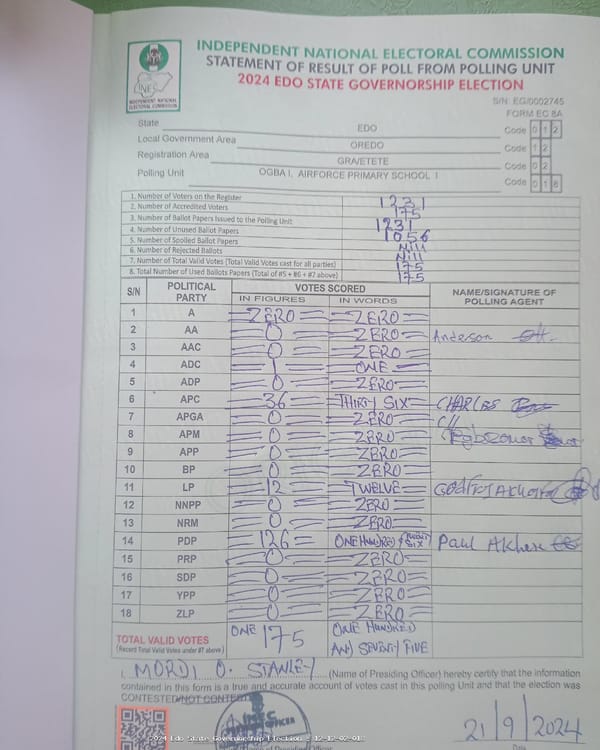 INDEPENDENT NATIONAL ELECTORAL COMMISSION
STATEMENT OF RESULT OF POLL FROM POLLING UNIT
2024 EDO STATE GOVERNORSHIP ELECTION
INEC
INDEPENDENT NATIONAL ELECTORAL COMMISSION
S/N: EG/0002745
FORM EC 8A
State EDO Code 0 1 2
Local Government Area OREDO Code 1 2
Registration Area GRA/ETETE Code 0 2
Polling Unit OGBA I, AIRFORCE PRIMARY SCHOOL I Code 0 1 8
1. Number of Voters on the Register 1231
2. Number of Accredited Voters 175
3. Number of Ballot Papers Issued to the Polling Unit 1231
4. Number of Unused Ballot Papers 1056
5. Number of Spoiled Ballot Papers Nill
6. Number of Rejected Ballots Nill
7. Number of Total Valid Votes (Total Valid Votes cast for all parties) 175
8. Total Number of Used Ballots Papers (Total of #5 + #6 + #7 above) 175
S/N POLITICAL PARTY VOTES SCORED NAME/SIGNATURE OF POLLING AGENT
IN FIGURES IN WORDS
1 A ZERO ZERO
2 AA 0 ZERO Anderson
3 AAC 0 ZERO
4 ADC 1 ONE
5 ADP 0 ZERO
6 APC 36 THIRTY SIX CHARLES
7 APGA 0 ZERO
8 APM 0 ZERO
9 APP 0 ZERO
10 BP 0 ZERO
11 LP 12 TWELVE
12 NNPP 0 ZERO
13 NRM 0 ZERO
14 PDP 126 ONE HUNDRED & TWENTY SIX Paul
15 PRP 0 ZERO
16 SDP 0 ZERO
17 YPP 0 ZERO
18 ZLP 0 ZERO
TOTAL VALID VOTES ONE 175 ONE HUNDRED
(Record Total Valid Votes under #7 above) AND SEVENTY FIVE
I, MORDI O. STANLEY (Name of Presiding Officer) hereby certify that the information
contained in this form is a true and accurate account of votes cast in this polling Unit and that the election was
CONTESTED/NOT CONTESTED
21/9/2024
Date
2024 Edo State Governorship Election - 12-12-02-018